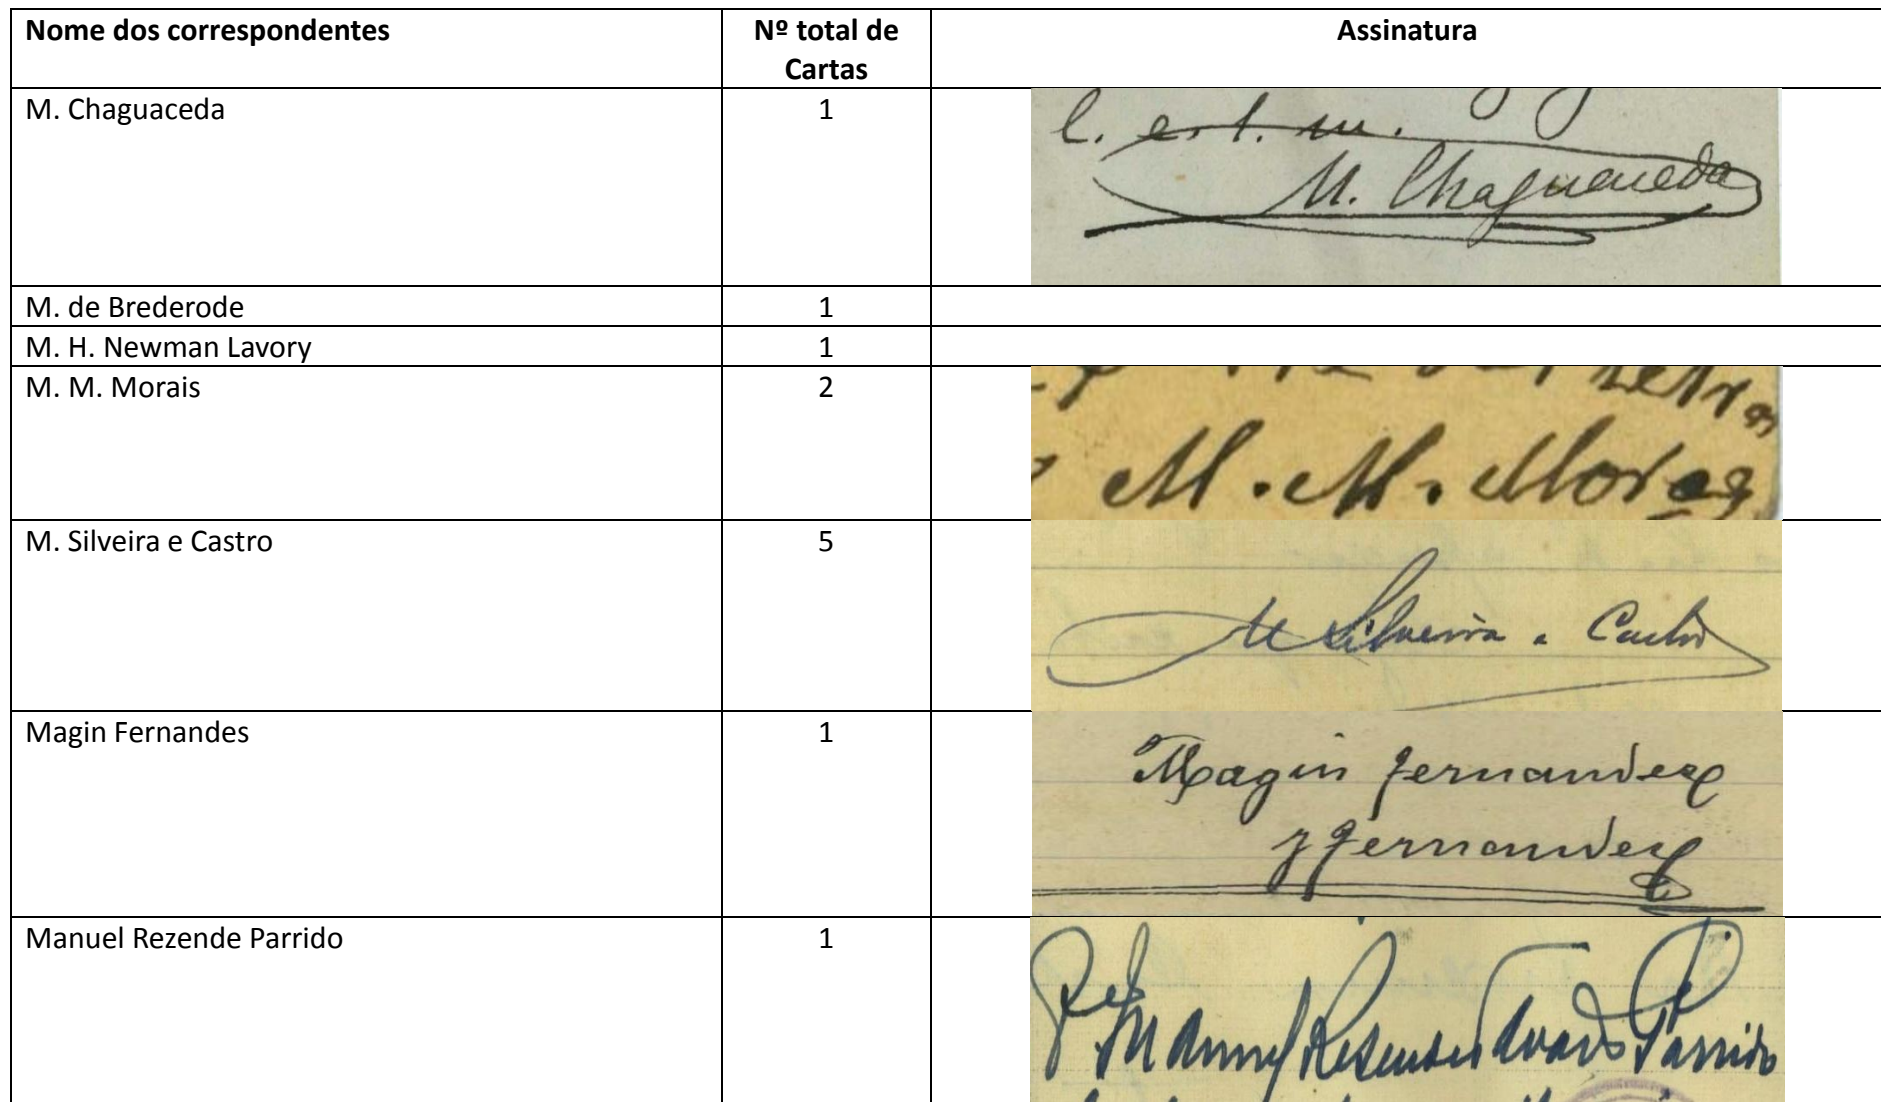 Nome dos correspondentes
Nº total de
Cartas
Assinatura
M. Chaguaceda
1
l. e. l. m.
M. Chaguaceda
M. de Brederode
1
M. H. Newman Lavory
1
M. M. Morais
2
M. M. Moraes
M. Silveira e Castro
5
M Silveira e Castro
Magin Fernandes
1
Magin Fernandez
y Fernandez
Manuel Rezende Parrido
1
Pe Manuel Resende Parrido